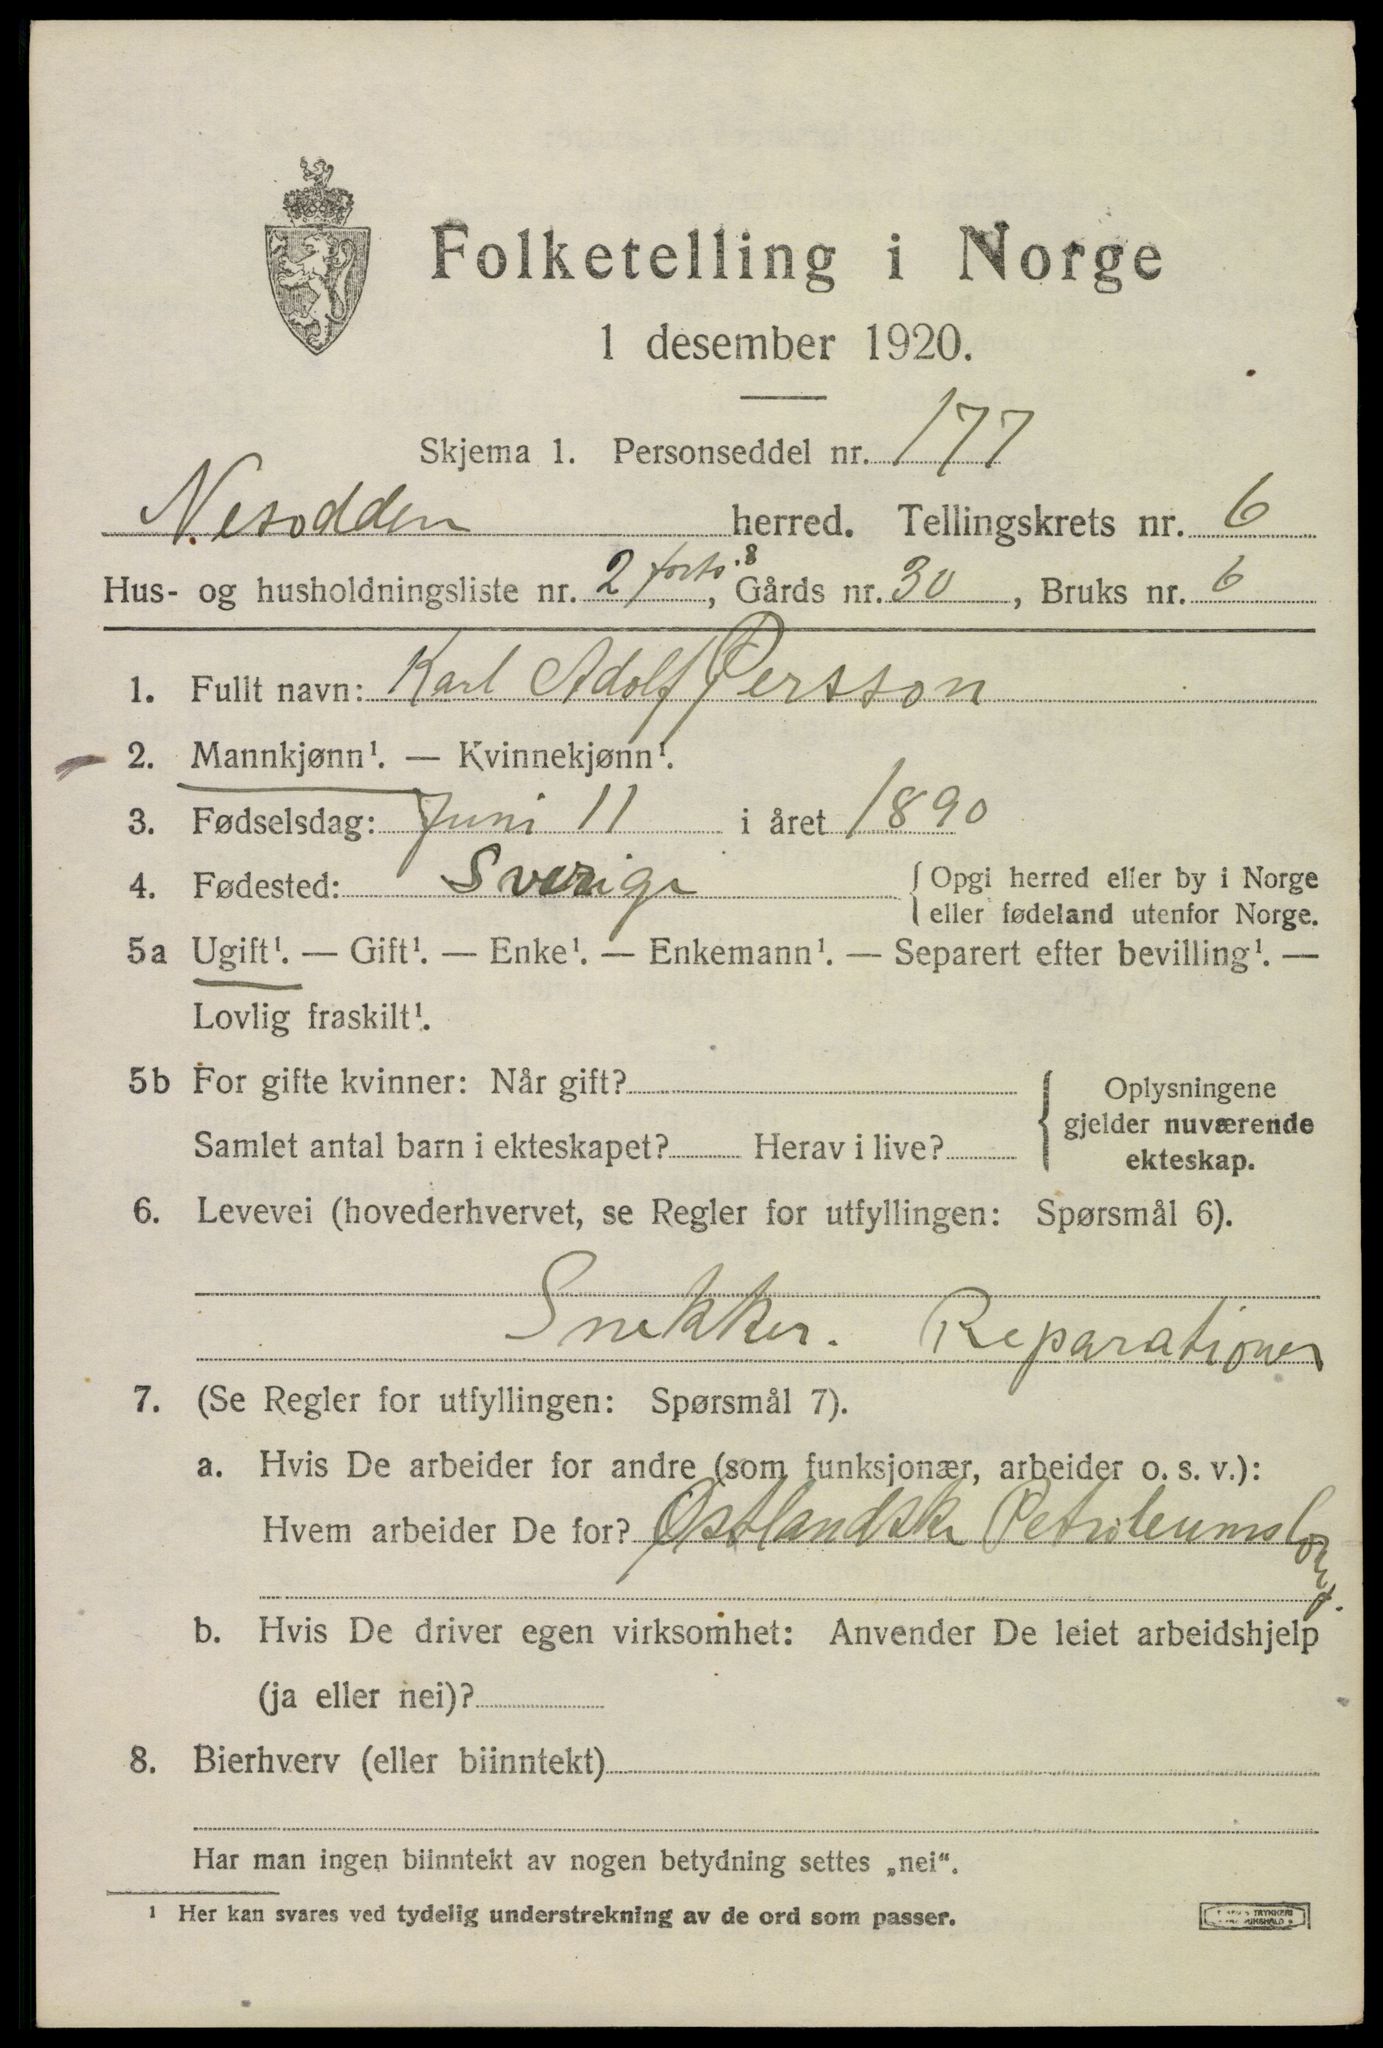 Folketelling i Norge
1 desember 1920.
Skjema 1. Personseddel nr. 177
Nesodden herred. Tellingskrets nr. 6
Hus- og husholdningsliste nr. 2 forts. 8, Gårds nr. 30, Bruks nr. 6
1. Fullt navn: Karl Adolf Persson
2. Mannkjønn¹. — Kvinnekjønn¹.
3. Fødselsdag: Juni 11 i året 1890
4. Fødested: Sverige { Opgi herred eller by i Norge
eller fødeland utenfor Norge.
5a Ugift¹. — Gift¹. — Enke¹. — Enkemann¹. — Separert efter bevilling¹. —
Lovlig fraskilt¹.
5b For gifte kvinner: Når gift?
Samlet antal barn i ekteskapet? Herav i live?
{ Oplysningene
gjelder nuværende
ekteskap.
6. Levevei (hovederhvervet, se Regler for utfyllingen: Spørsmål 6).
Snekker. Reparationer
7. (Se Regler for utfyllingen: Spørsmål 7).
a. Hvis De arbeider for andre (som funksjonær, arbeider o. s. v.):
Hvem arbeider De for? Østlandske Petroleums
b. Hvis De driver egen virksomhet: Anvender De leiet arbeidshjelp
(ja eller nei)?
8. Bierhverv (eller biinntekt)
Har man ingen biinntekt av nogen betydning settes „nei“.
¹ Her kan svares ved tydelig understrekning av de ord som passer.